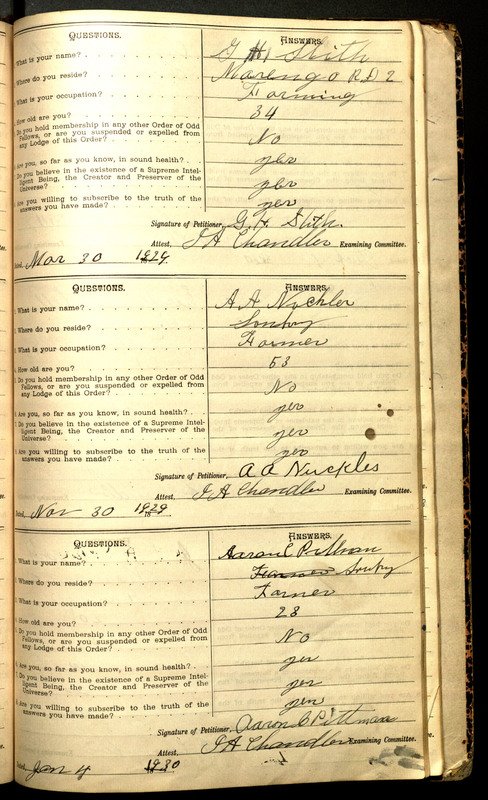 QUESTIONS. ANSWERS.
What is your name? G H Stith
Where do you reside? Marengo RD 2
What is your occupation? Farming
How old are you? 34
Do you hold membership in any other Order of Odd
Fellows, or are you suspended or expelled from
any Lodge of this Order? No
Are you, so far as you know, in sound health? yes
Do you believe in the existence of a Supreme Intel-
ligent Being, the Creator and Preserver of the
Universe? yes
Are you willing to subscribe to the truth of the
answers you have made? yes
Signature of Petitioner, G. H. Stith.
Attest, J A Chandler Examining Committee.
Dated, Mar 30 1929
QUESTIONS. ANSWERS.
What is your name? A A Nuckler
Where do you reside?
What is your occupation? Farmer
How old are you? 53
Do you hold membership in any other Order of Odd
Fellows, or are you suspended or expelled from
any Lodge of this Order? No
Are you, so far as you know, in sound health? yes
Do you believe in the existence of a Supreme Intel-
ligent Being, the Creator and Preserver of the
Universe? yes
Are you willing to subscribe to the truth of the
answers you have made? yes
Signature of Petitioner, A A Nuckles
Attest, J A Chandler Examining Committee.
Dated, Nov 30 1929
QUESTIONS. ANSWERS.
What is your name? Aaron C Pittman
Where do you reside? Farmer
What is your occupation? Farmer
How old are you? 28
Do you hold membership in any other Order of Odd
Fellows, or are you suspended or expelled from
any Lodge of this Order? No
Are you, so far as you know, in sound health? yes
Do you believe in the existence of a Supreme Intel-
ligent Being, the Creator and Preserver of the
Universe? yes
Are you willing to subscribe to the truth of the
answers you have made? yes
Signature of Petitioner, Aaron C Pittman
Attest, J A Chandler Examining Committee.
Dated, Jan 4 1930